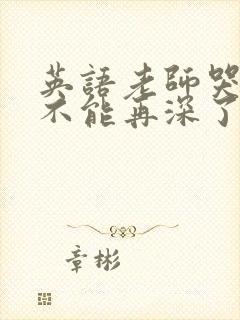 英語老師哭
不能再深了
章彬